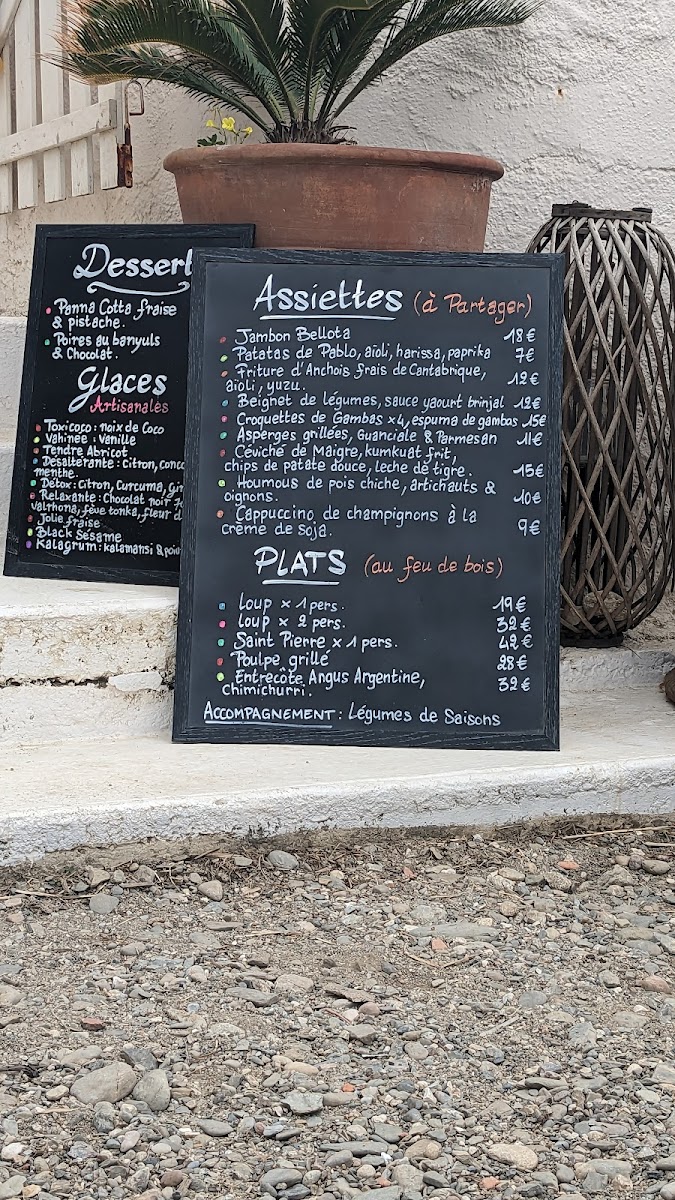 Dessert
Panna Cotta fraise
& pistache.
Poires au banyuls
& Chocolat.
Glaces
Artisanales
Toxicoco : noix de Coco
Vahinee : Vanille
Tendre Abricot
Desalterante : Citron,
menthe.
Detox : Citron, Curcuma,
Relaxante : Chocolat noir
valrhona, fève tonka, fleur
Jolie fraise
Black Sésame
Kalagrum : kalamansi &
Assiettes (à Partager)
Jambon Bellota 18€
Patatas de Pablo, aïoli, harissa, paprika 7€
Friture d'Anchois frais de Cantabrique,
aïoli, yuzu. 12€
Beignet de légumes, sauce yaourt brinjal 12€
Croquettes de Gambas x4, espuma de gambas 15€
Asperges grillées, Guanciale & Parmesan 11€
Céviché de Maigre, kumkuat frit,
chips de patate douce, leche de tigre. 15€
Houmous de pois chiche, artichauts &
oignons. 10€
Cappuccino de champignons à la
crème de soja. 9€
PLATS (au feu de bois)
Loup x 1 pers. 19€
Loup x 2 pers. 32€
Saint Pierre x 1 pers. 42€
Poulpe grillé 28€
Entrecôte Angus Argentine,
Chimichurri. 32€
ACCOMPAGNEMENT : Légumes de Saisons